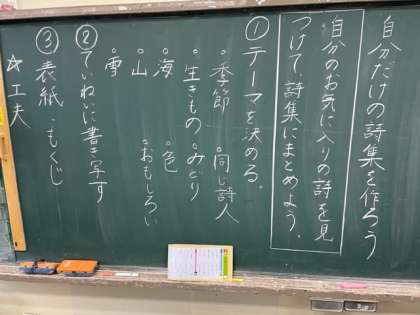 自分だけの詩集を作ろう
自分のお気に入りの詩を見
つけて、詩集にまとめよう。
①テーマを決める。
・季節 ・同じ詩人
・生きもの ・みどり
・海 ・色
・山 ・おもしろい
・雪
②ていねいに書き写す
③表紙・もくじ
☆工夫